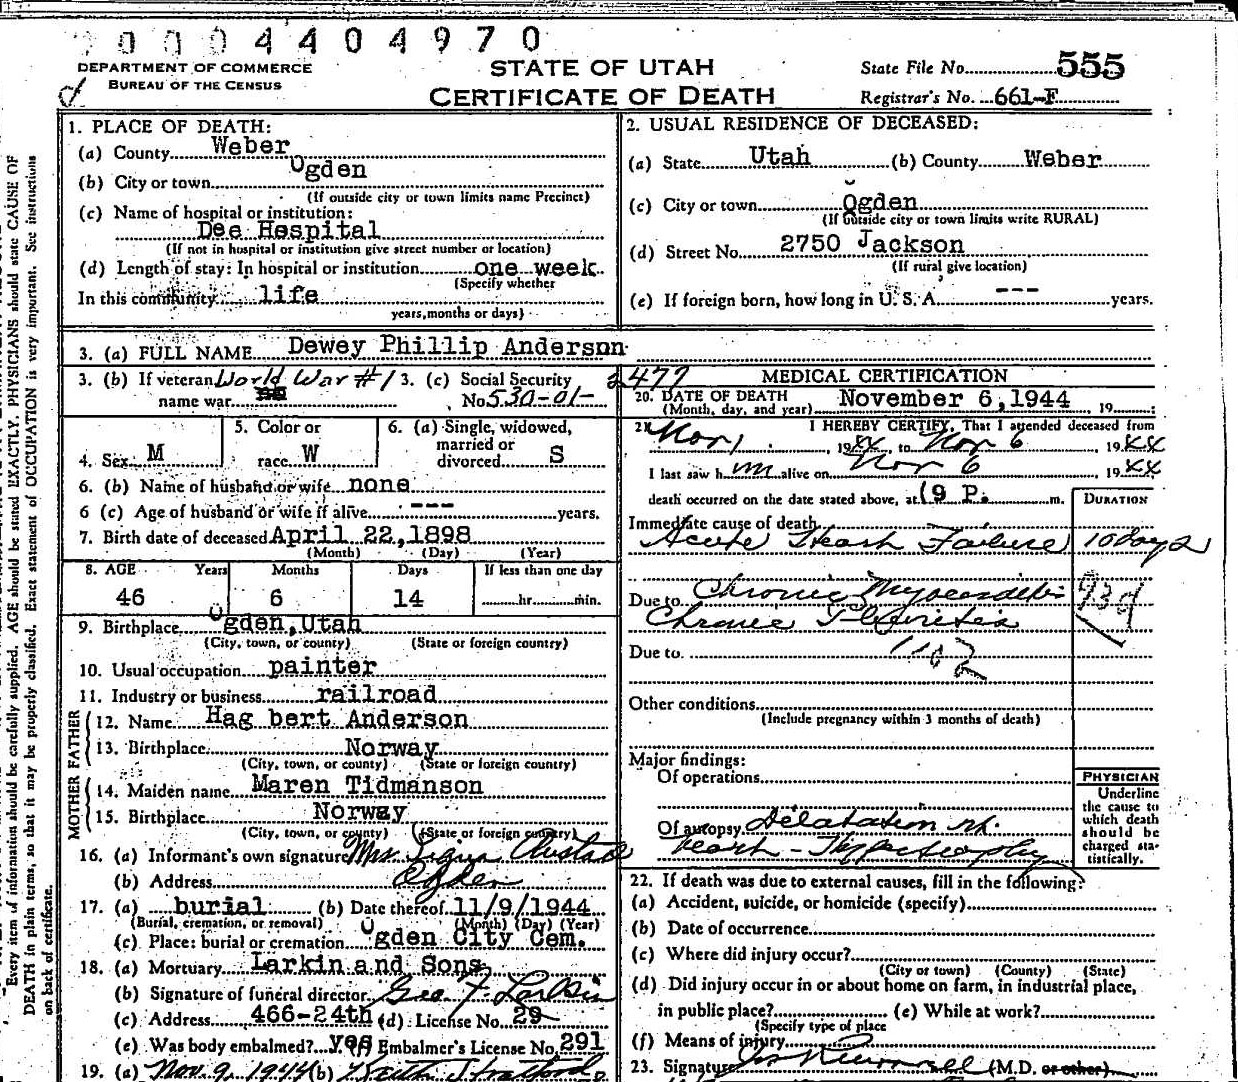 0004404970
DEPARTMENT OF COMMERCE
BUREAU OF THE CENSUS
STATE OF UTAH
CERTIFICATE OF DEATH
State File No. 555
Registrar's No. 661-F
1. PLACE OF DEATH:
(a) County Weber
(b) City or town Ogden
(If outside city or town limits name Precinct)
(c) Name of hospital or institution:
Dee Hospital
(If not in hospital or institution give street number or location)
(d) Length of stay: In hospital or institution one week
(Specify whether
In this community life
years, months or days)
2. USUAL RESIDENCE OF DECEASED:
(a) State Utah (b) County Weber
(c) City or town Ogden
(If outside city or town limits write RURAL)
(d) Street No. 2750 Jackson
(If rural give location)
(e) If foreign born, how long in U. S. A. --- years.
3. (a) FULL NAME Dewey Phillip Anderson
3. (b) If veteran World War #1 3. (c) Social Security 2477
name war no No 530-01-
4. Sex M
5. Color or
race W
6. (a) Single, widowed,
married or
divorced S
6. (b) Name of husband or wife none
6 (c) Age of husband or wife if alive --- years.
7. Birth date of deceased April 22, 1898
(Month) (Day) (Year)
8. AGE Years Months Days If less than one day
46 6 14 hr. min.
9. Birthplace Ogden, Utah
(City, town, or county) (State or foreign country)
10. Usual occupation painter
11. Industry or business railroad
FATHER
12. Name Hag bert Anderson
13. Birthplace Norway
(City, town, or county) (State or foreign country)
MOTHER
14. Maiden name Maren Tidmanson
15. Birthplace Norway
(City, town, or county) (State or foreign country)
16. (a) Informant's own signature Mrs.
(b) Address Ogden
17. (a) burial (b) Date thereof 11/9/1944
(Burial, cremation, or removal) (Month) (Day) (Year)
(c) Place: burial or cremation Ogden City Cem.
18. (a) Mortuary Larkin and Sons
(b) Signature of funeral director Geo. F. Larkin
(c) Address 466-24th (d) License No. 29
(e) Was body embalmed? yes (f) Embalmer's License No. 291
19. (a) Nov. 9, 1944 (b)
MEDICAL CERTIFICATION
20. DATE OF DEATH
(Month, day, and year) November 6, 1944, 19
21. I HEREBY CERTIFY, That I attended deceased from
Nov 1, 1944, to Nov 6, 1944
I last saw him alive on Nov 6 1944
death occurred on the date stated above, at 9 P. m.
DURATION
Immediate cause of death
Acute Heart Failure 10 days
Due to Chronic Myocarditis 93d
Chronic Pleurisy
Due to
Other conditions
(Include pregnancy within 3 months of death)
Major findings:
Of operations
Of autopsy Dilatation
Heart - Hypertrophy
PHYSICIAN
Underline
the cause to
which death
should be
charged sta-
tistically.
22. If death was due to external causes, fill in the following:
(a) Accident, suicide, or homicide (specify)
(b) Date of occurrence
(c) Where did injury occur?
(City or town) (County) (State)
(d) Did injury occur in or about home on farm, in industrial place,
in public place? (e) While at work?
(Specify type of place
(f) Means of injury
23. Signature (M.D. or other)
Every item of information should be carefully supplied. AGE should be stated EXACTLY. PHYSICIANS should state CAUSE OF
DEATH in plain terms, so that it may be properly classified. Exact statement of OCCUPATION is very important. See instructions
on back of certificate.